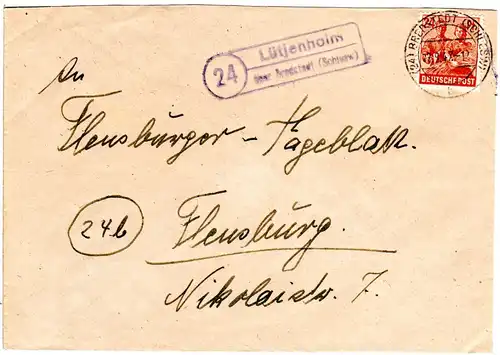 24
Lütjenholm
über Bredstedt (Schlesw)
(24) BREDSTEDT (SCHLESW)
DEUTSCHE POST
An
Flensburger-Tageblatt.
24b
Flensburg.
Nikolaistr. 7.